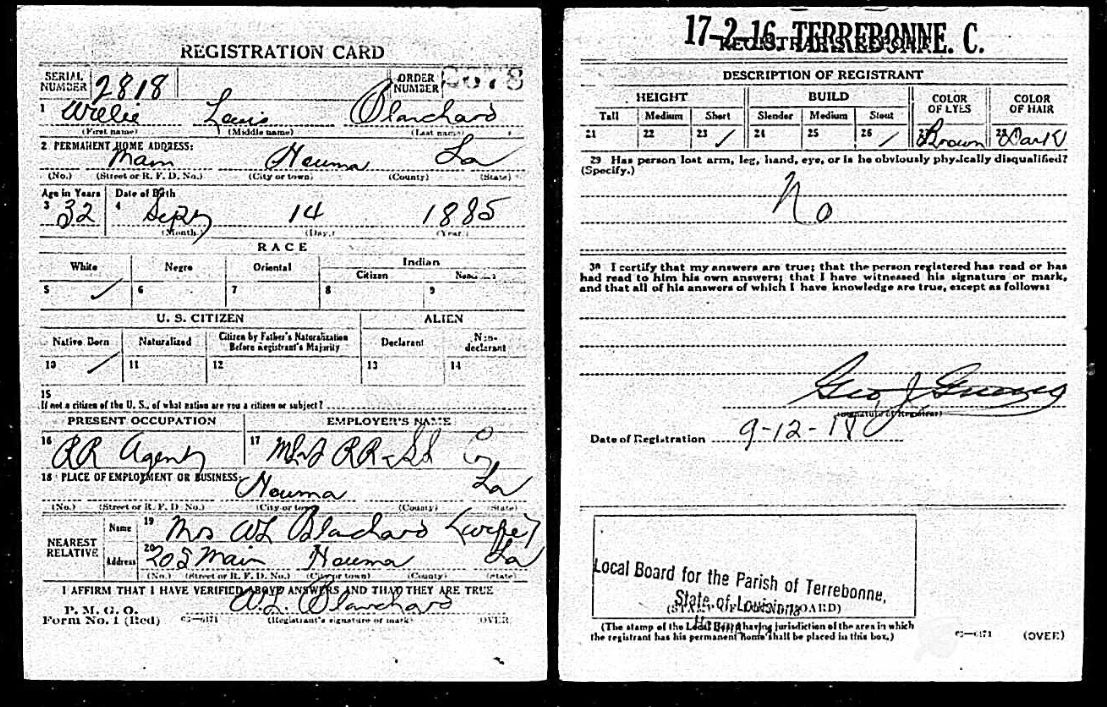 REGISTRATION CARD
SERIAL NUMBER 2818 ORDER NUMBER
1 Willie Louis Blanchard
(First name) (Middle name) (Last name)
2 PERMANENT HOME ADDRESS:
Main Houma La
(No.) (Street or R. F. D. No.) (City or town) (County) (State)
Age in Years Date of Birth
3 32 4 Sept 14 1885
(Month.) (Day.) (Year.)
RACE
White Negro Oriental Indian
Citizen
5 / 6 7 8 9
U. S. CITIZEN ALIEN
Native Born Naturalized Citizen by Father's Naturalization Before Registrant's Majority Declarant Non-declarant
10 / 11 12 13 14
15
If not a citizen of the U. S., of what nation are you a citizen or subject?
PRESENT OCCUPATION EMPLOYER'S NAME
16 RR Agent 17 RR & SS Co
18 PLACE OF EMPLOYMENT OR BUSINESS:
Houma La
(No.) (Street or R. F. D. No.) (City or town) (County) (State)
NEAREST RELATIVE Name 19 Mrs WL Blanchard (wife)
Address 20 Main Houma La
(No.) (Street or R. F. D. No.) (City or town) (County) (State)
I AFFIRM THAT I HAVE VERIFIED ABOVE ANSWERS AND THAT THEY ARE TRUE
W.L. Blanchard
P. M. G. O.
Form No. 1 (Red) (Registrant's signature or mark) (OVER)
17-2-16 TERREBONNE. C.
REGISTRAR'S REPORT
DESCRIPTION OF REGISTRANT
HEIGHT BUILD COLOR OF EYES COLOR OF HAIR
Tall Medium Short Slender Medium Stout
21 22 23 / 24 25 26 / 27 Brown 28 Dark
29 Has person lost arm, leg, hand, eye, or is he obviously physically disqualified?
(Specify.)
No
30 I certify that my answers are true; that the person registered has read or has
had read to him his own answers; that I have witnessed his signature or mark,
and that all of his answers of which I have knowledge are true, except as follows:
Geo J
(Signature of Registrar)
Date of Registration 9-12-18
Local Board for the Parish of Terrebonne,
State of Louisiana
Houma
(The stamp of the Local Board having jurisdiction of the area in which
the registrant has his permanent home shall be placed in this box.)
(OVER)